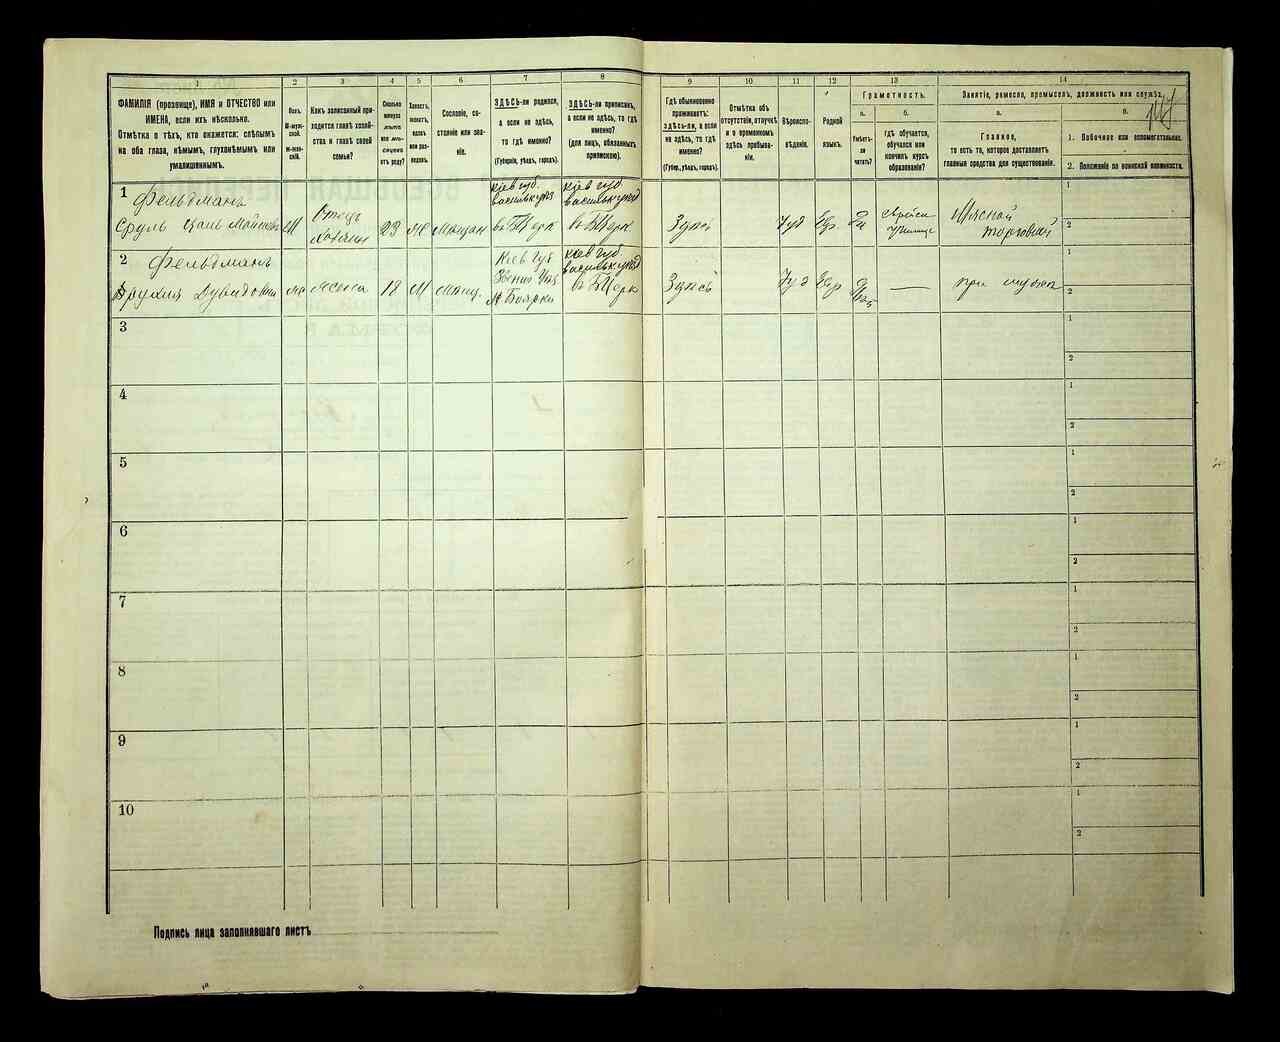 1 2 3 4 5 6 7 8 9 10 11 12 13 14
ФАМИЛІЯ (прозвище), ИМЯ и ОТЧЕСТВО или
ИМЕНА, если ихъ нѣсколько.
Отмѣтка о тѣхъ, кто окажется: слѣпымъ
на оба глаза, нѣмымъ, глухонѣмымъ или
умалишеннымъ.
Полъ.
М-муж-
ской.
Ж-жен-
скій.
Какъ записанный при-
ходится главѣ хозяй-
ства и главѣ своей
семьи?
Сколько
минуло
лѣтъ
или мѣ-
сяцевъ
отъ роду?
Холостъ,
женатъ,
вдовъ
или раз-
веденъ.
Сословіе, со-
стояніе или зва-
ніе.
ЗДѢСЬ-ли родился,
а если не здѣсь,
то гдѣ именно?
(Губернія, уѣздъ, городъ).
ЗДѢСЬ-ли приписанъ,
а если не здѣсь, то гдѣ
именно?
(для лицъ, обязанныхъ
припискою).
Гдѣ обыкновенно
проживаетъ:
здѣсь-ли, а если
не здѣсь, то гдѣ
именно?
(Губер., уѣздъ, городъ).
Отмѣтка объ
отсутствіи, отлучкѣ
и о временномъ
здѣсь пребыва-
ніи.
Вѣроиспо-
вѣданіе.
Родной
языкъ.
Грамотность.
а.
Умѣетъ-
ли
читать?
б.
Гдѣ обучается,
обучался или
кончилъ курсъ
образованія?
Занятіе, ремесло, промыселъ, должность или служба.
а.
Главное,
то есть то, которое доставляетъ
главныя средства для существованія.
в.
1. Побочное или вспомогательное.
2. Положеніе по воинской повинности.
1 Фельдманъ
Сруль М
Отецъ
23 Мѣщан
Кіев губ.
въ БЦерк
Кіев губ.
въ БЦерк
Здѣсь Іуд Евр. Да
училище
Мясной
торговли
1
2
2 Фельдманъ
18 мѣщ.
Кіев Губ
Кіев губ.
въ БЦерк
Здѣсь Іуд Евр —
при мужѣ
1
2
3 1
2
4 1
2
5 1
2
6 1
2
7 1
2
8 1
2
9 1
2
10 1
2
Подпись лица заполнявшаго листъ